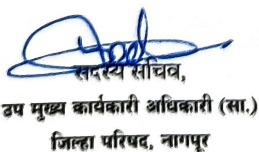 सदस्य सचिव,
उप मुख्य कार्यकारी अधिकारी (सा.)
जिल्हा परिषद, नागपूर